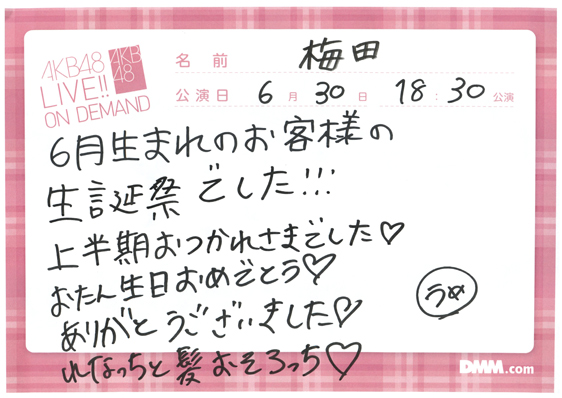 AKB48
LIVE!!
ON DEMAND
AKB
48
名前 梅田
公演日 6月30日 18:30公演
6月生まれのお客様の
生誕祭でした!!!
上半期おつかれさまでした♡
おたん生日おめでとう♡
ありがとうございました♡
れなっちと髪おそろっち♡
うめ
DMM.com